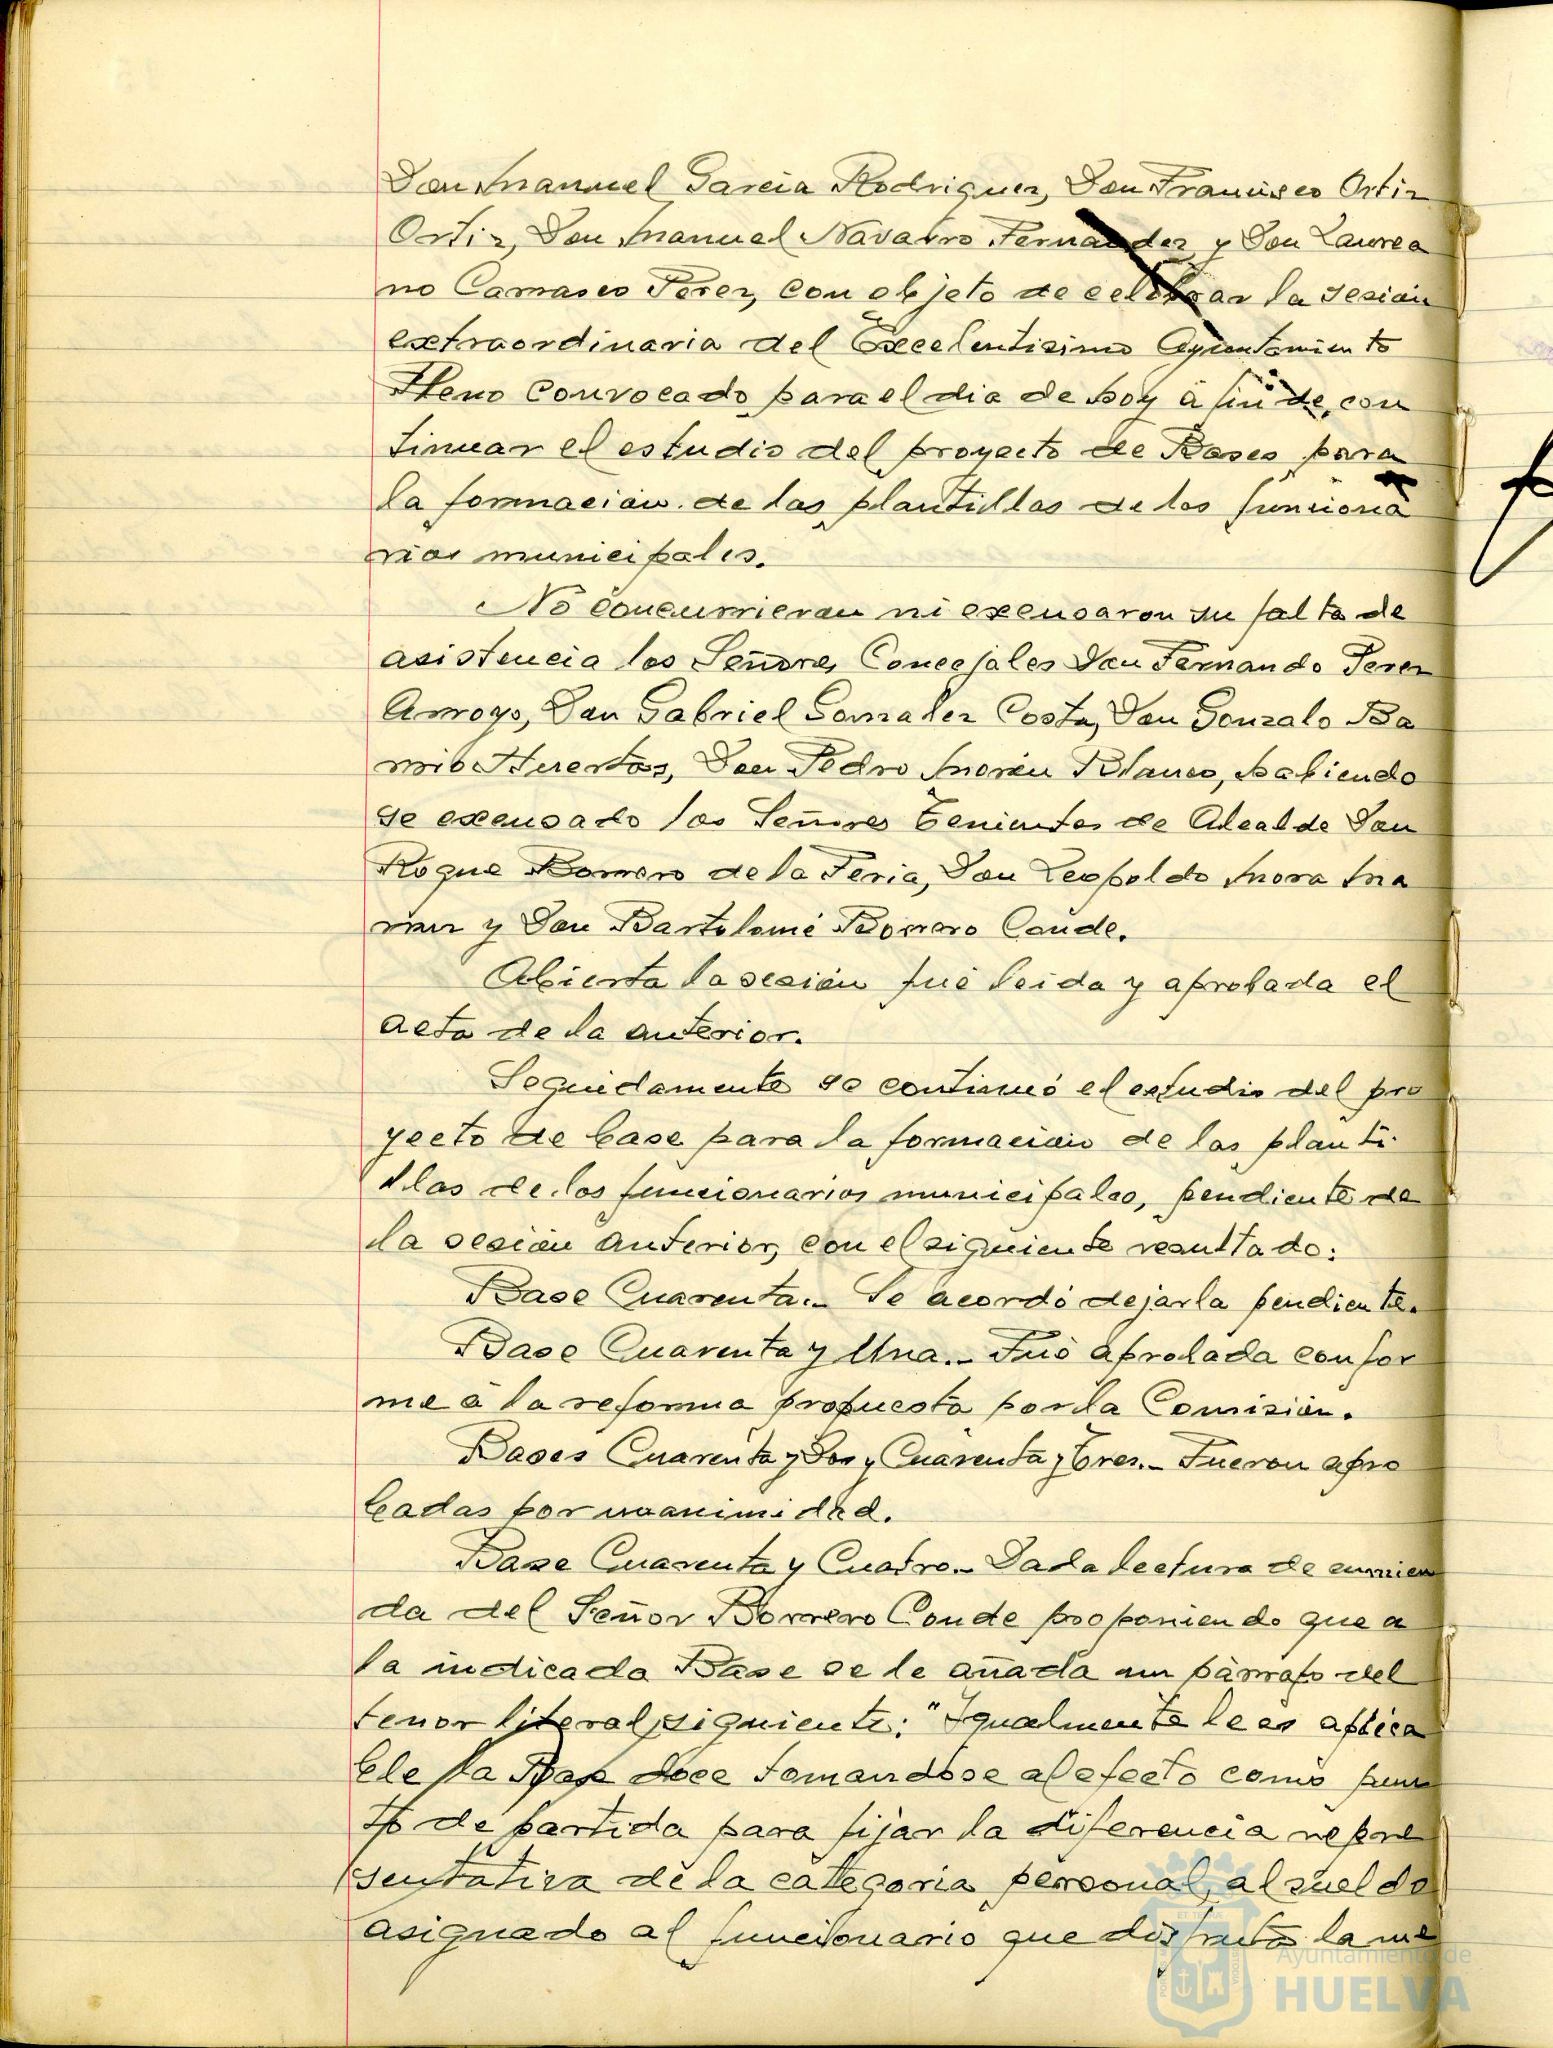 Don Manuel Garcia Rodriguez, Don Francisco Ortiz
Ortiz, Don Manuel Navarro Fernandez y Don Laurea
no Carrasco Perez, con objeto de celebrar la sesión
extraordinaria del Excelentisimo Ayuntamiento
Pleno convocado para el dia de hoy á fin de con
tinuar el estudio del proyecto de Bases para
la formación de las plantillas de los funciona
rios municipales.
No concurrieron ni excusaron su falta de
asistencia los Señores Concejales Don Fernando Perez
Arroyo, Don Gabriel Gonzalez Costa, Don Gonzalo Ba
rrio Huertas, Don Pedro Morón Blanco, habiendo
se excusado los Señores Tenientes de Alcalde Don
Roque Borrero de la Feria, Don Leopoldo Mora Ma
y Don Bartolomé Borrero Conde.
Abierta la sesión fué leida y aprobada el
acta de la anterior.
Seguidamente se continuó el estudio del pro
yecto de base para la formación de las planti
llas de los funcionarios municipales, pendiente de
la sesión anterior, con el siguiente resultado:
Base Cuarenta.- Se acordó dejarla pendiente.
Base Cuarenta y Una.- Fué aprobada confor
me á la reforma propuesta por la Comisión.
Bases Cuarenta y Dos y Cuarenta y Tres.- Fueron apro
badas por unanimidad.
Base Cuarenta y Cuatro.- Dada lectura de enmien
da del Señor Borrero Conde proponiendo que a
la indicada Base se le añada un párrafo del
tenor literal siguiente: "Igualmente le es aplica
ble la Base doce tomandose al efecto como pun
to de partida para fijar la diferencia repre
sentativa de la categoria personal, al sueldo
asignado al funcionario que disfruta la me
Ayuntamiento de
HUELVA